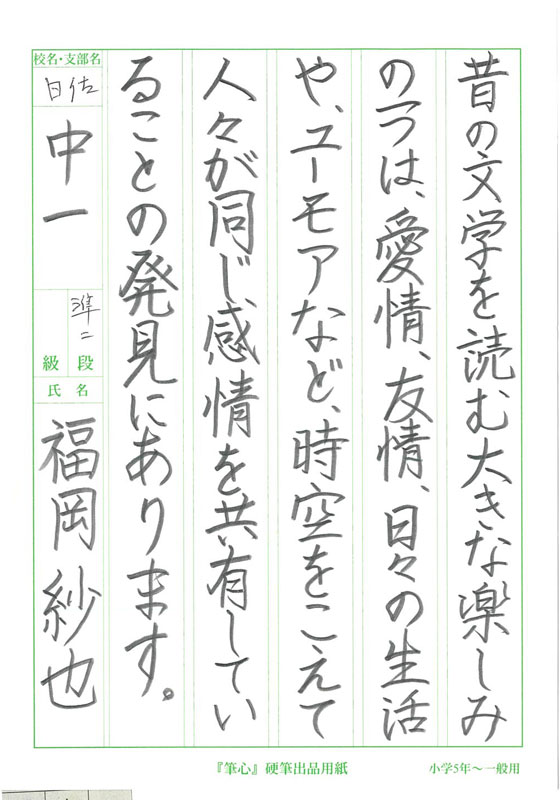 昔の文学を読む大きな楽しみ
の一つは、愛情、友情、日々の生活
や、ユーモアなど、時空をこえて
人々が同じ感情を共有してい
ることの発見にあります。
校名・支部名
日佐
中一
準二
段
級
氏名
福岡紗也
『筆心』硬筆出品用紙
小学5年～一般用